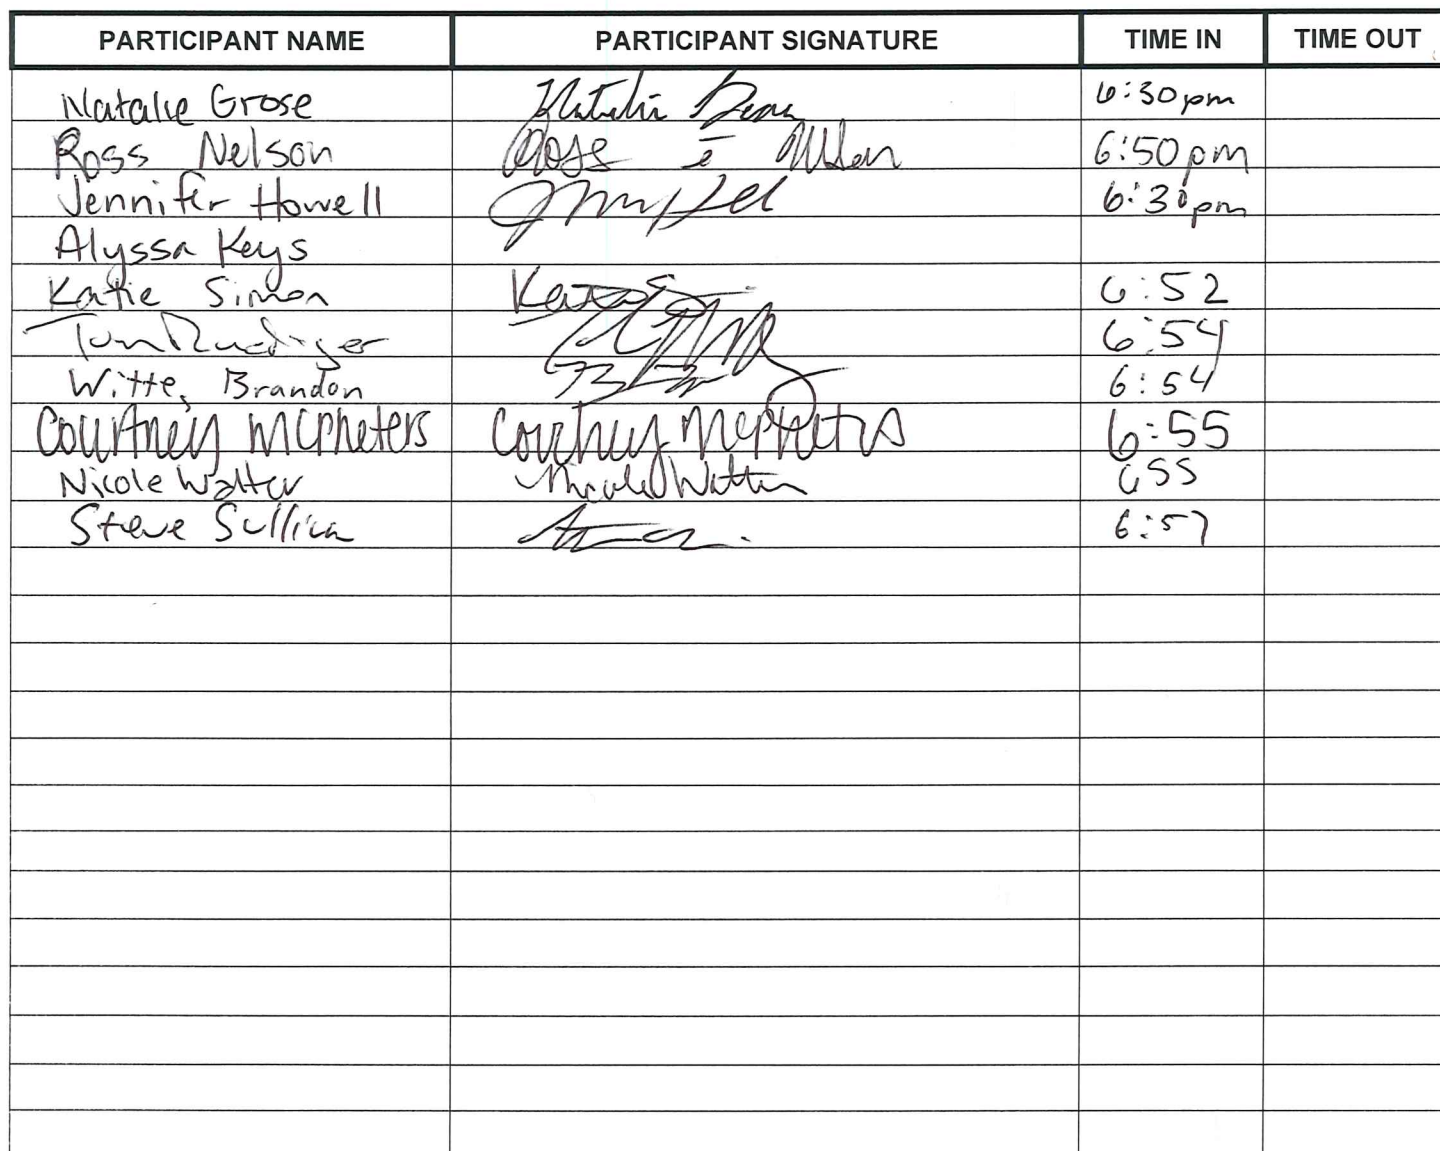 PARTICIPANT NAME PARTICIPANT SIGNATURE TIME IN TIME OUT
Natalie Grose Natalie 6:30pm
Ross Nelson Ross E Nelson 6:50pm
Jennifer Howell 6:30pm
Alyssa Keys
Katie Simon 6:52
Tom Ruediger 6:54
Witte, Brandon 6:54
Courtney McPheters Courtney McPheters 6:55
Nicole Walter Nicole Walter 655
Steve Sullivan 6:57